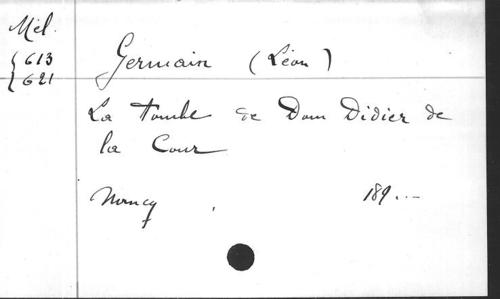 Mél.
613
621
Germain (Léon)
La Tombe de Dom Didier de
la Cour
Nancy, 189...